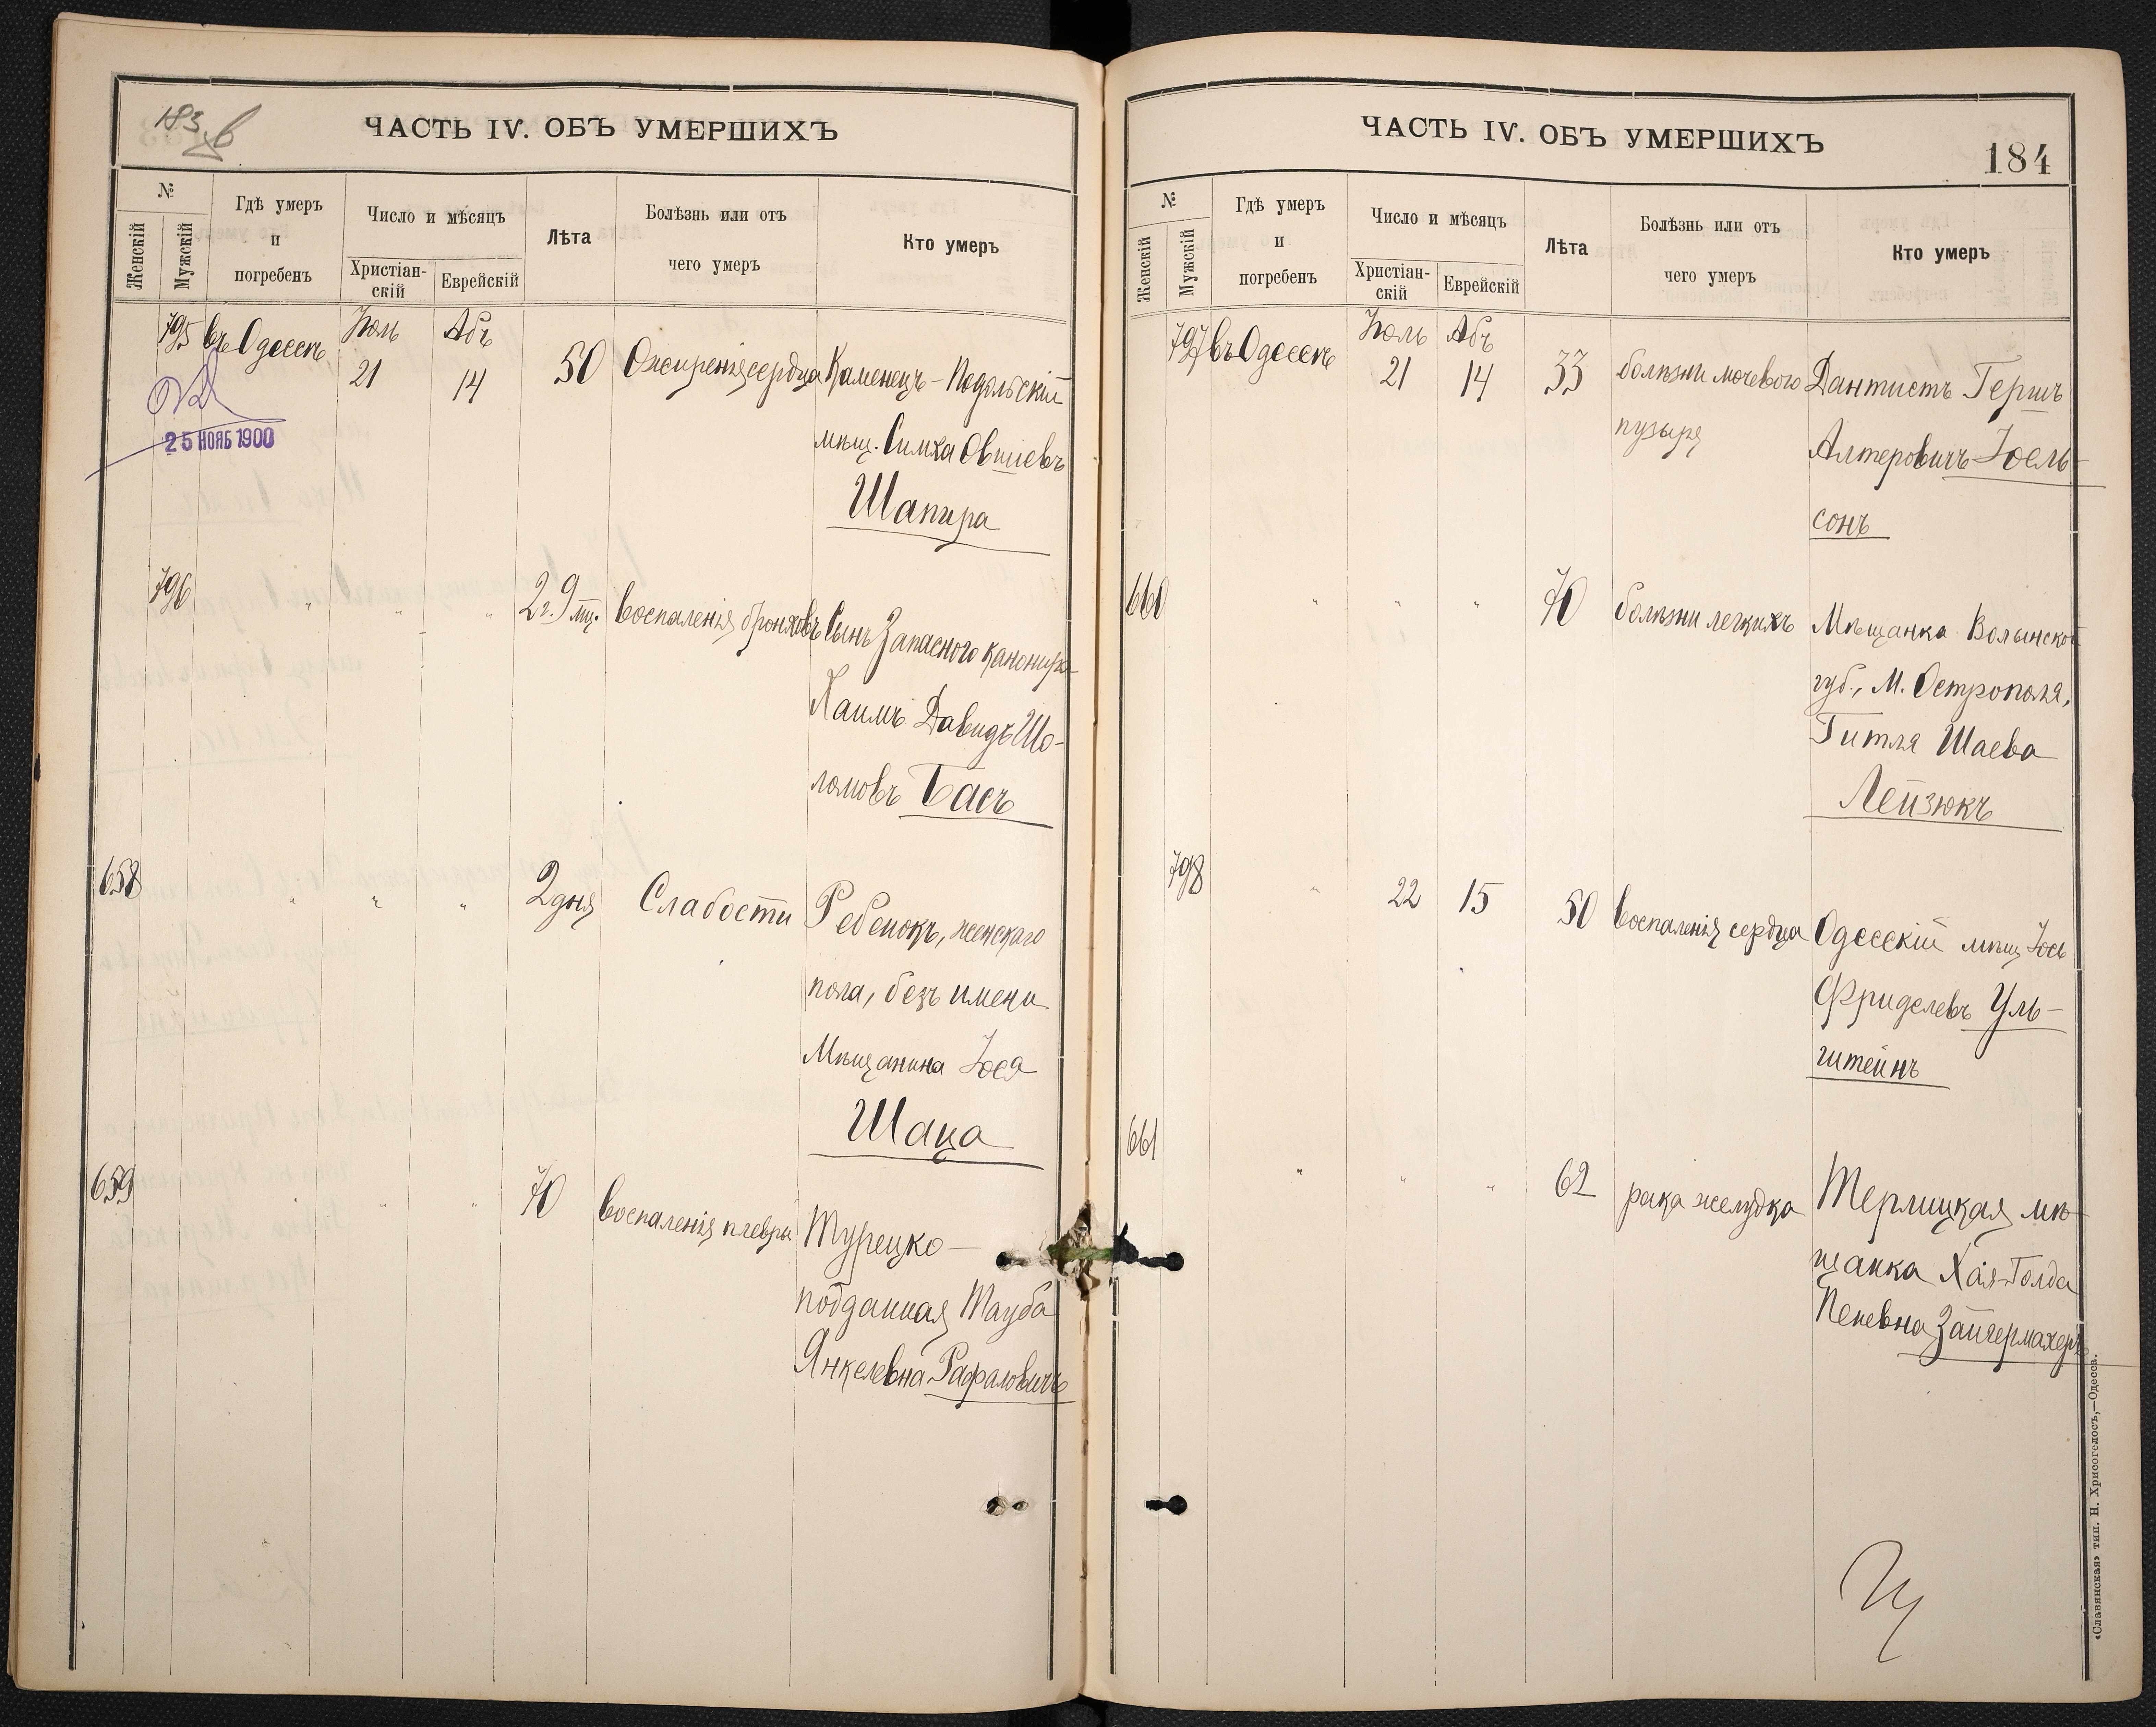 183
ЧАСТЬ IV. ОБЪ УМЕРШИХЪ
№
Женскій
Мужскій
Гдѣ умеръ
и
погребенъ
Число и мѣсяцъ
Христіан-
скій
Еврейскій
Лѣта
Болѣзнь или отъ
чего умеръ
Кто умеръ
795 въ Одессѣ Іюль 21 Абъ 14 50 Ожиренія сердца Каменецъ-Подольскій
25 НОЯБ 1900
мѣщ. Симха Овшіевъ
Шапира
796 " " " 2 г. 9 мц. Воспаленія бронховъ Сынъ Запаснаго канонира
Хаимъ Давидъ Шо-
ломовъ Басъ
658 " " " 2 дня Слабости Ребенокъ, женскаго
пола, безъ имени
Мѣщанина Іося
Шаца
659 " " " 70 Воспаленія плевры Турецко-
подданная Тауба
Янкелевна Рафаловичъ
ЧАСТЬ IV. ОБЪ УМЕРШИХЪ
184
№
Женскій
Мужскій
Гдѣ умеръ
и
погребенъ
Число и мѣсяцъ
Христіан-
скій
Еврейскій
Лѣта
Болѣзнь или отъ
чего умеръ
Кто умеръ
797 въ Одессѣ Іюль 21 Абъ 14 33 болѣзни мочевого Дантистъ Гершъ
пузыря Алтеровичъ Іоель-
сонъ
660 " " " 70 болѣзни легкихъ Мѣщанка Волынской
губ., М. Острополя,
Гитля Шаева
Лейзюкъ
798 " 22 15 50 Воспаленія сердца Одесскій мѣщ Іось
Фриделевъ Уль-
штейнъ
661 " " " 62 рака желудка Терлицкая мѣ-
щанка Хая-Голда
Зайгермахеръ
«Славянская» тип. Н. Хрисогелосъ,—Одесса.